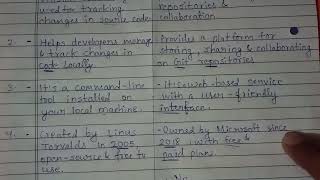 used for tracking
changes in source code.
repositories &
collaboration
2. - Helps developers manage
& track changes in
code locally.
- Provides a platform for
storing, sharing & collaborating
on Git repositories
3. - It's a command-line
tool installed on
your local machine.
- It is a web-based service
with a user-friendly
interface.
4. - Created by Linus
Torvalds in 2005,
open-source & free to
use.
- Owned by Microsoft since
2018, with free &
paid plans.